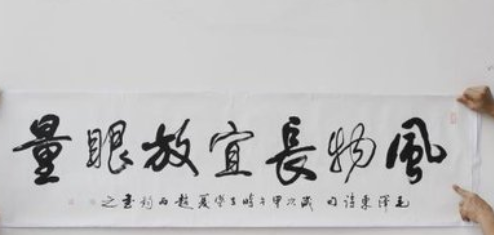 風物長宜放眼量
毛澤東詩句 歲次甲午時 夏 書之